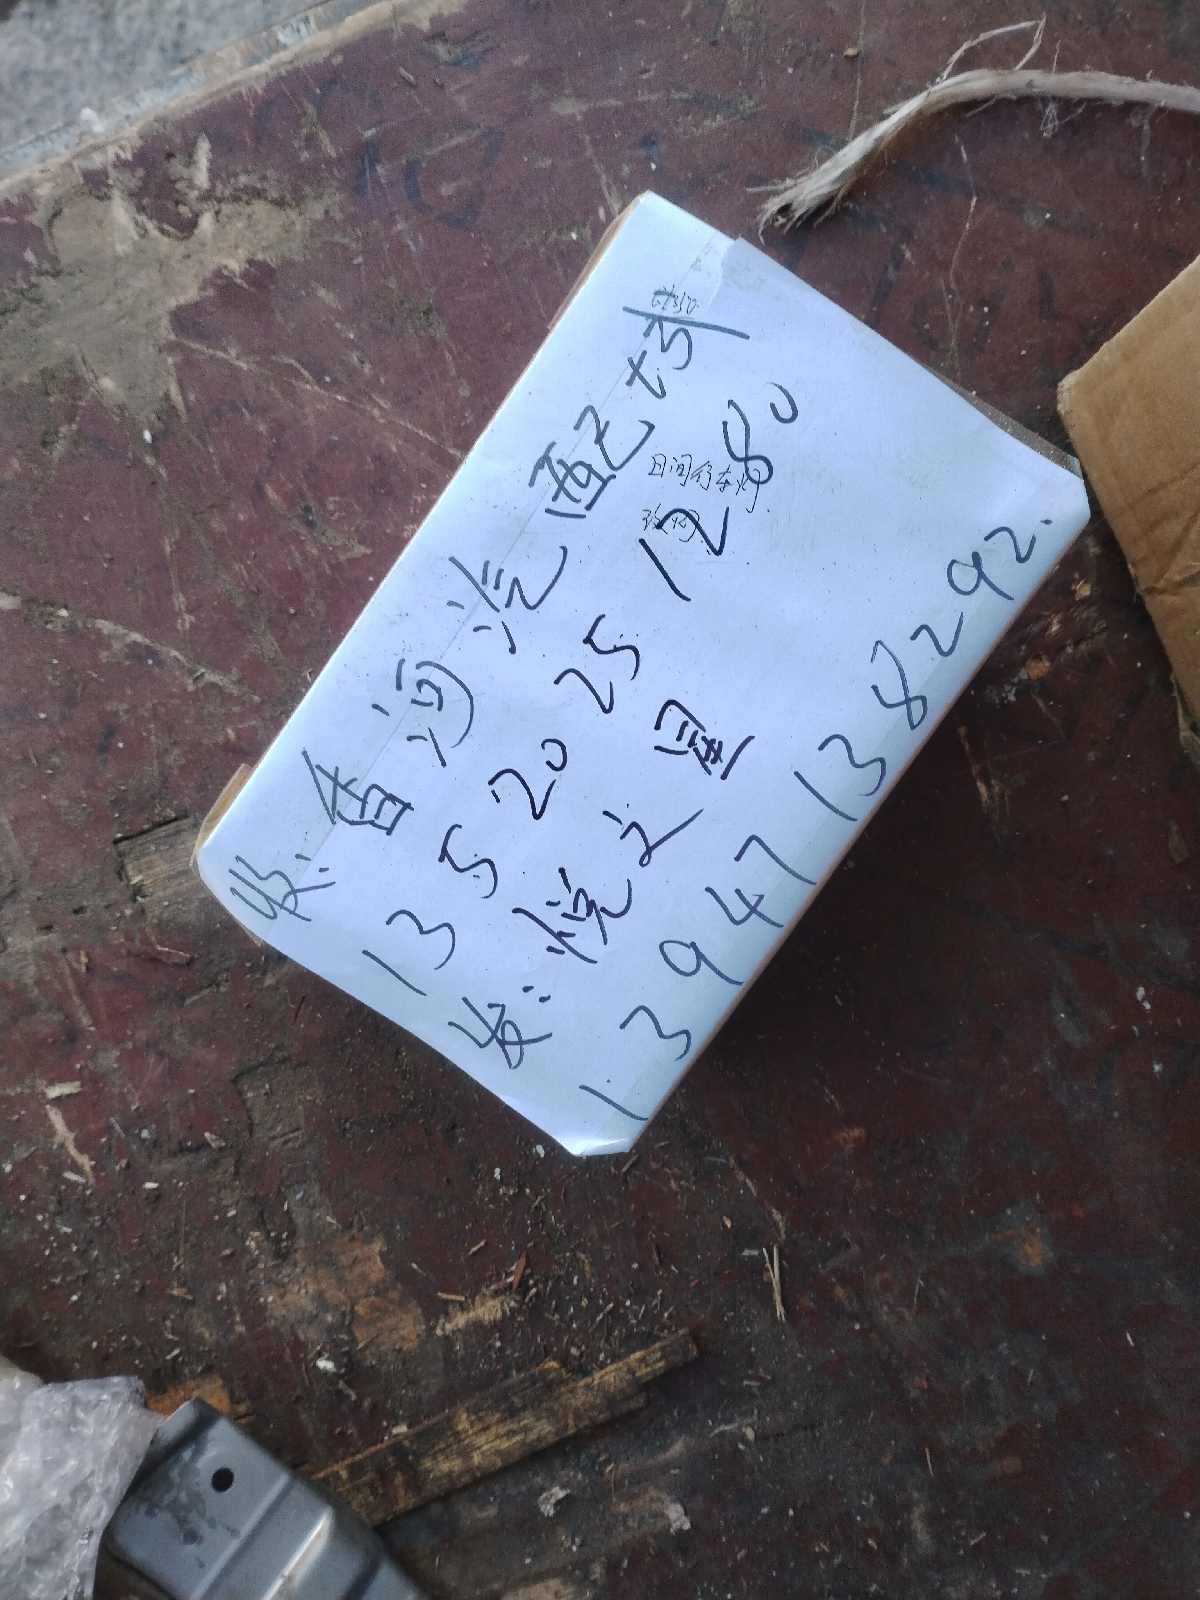 收：香河汽配七部
13520251280
发：悦之星
13947138292.
日间行车灯.